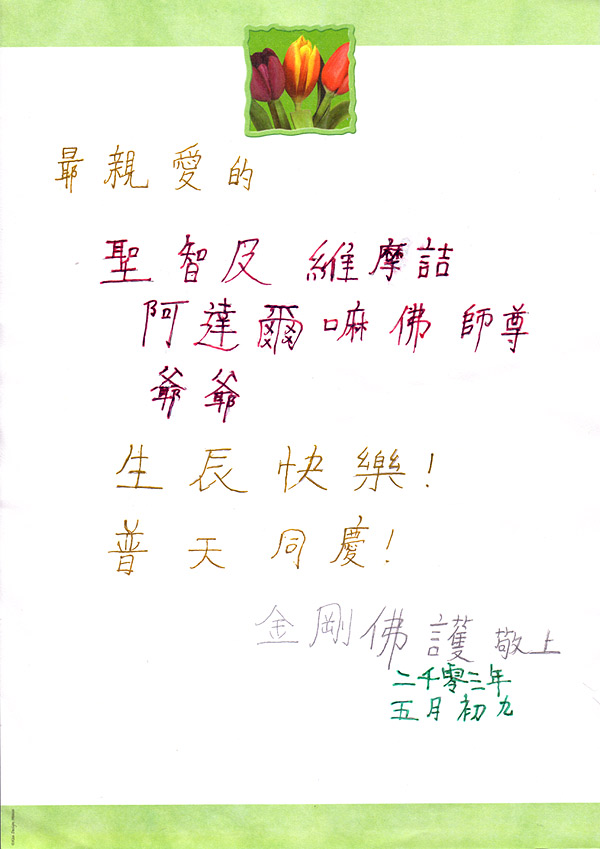 最親愛的
聖智及維摩詰
阿達爾嘛佛師尊
爺爺
生辰快樂！
普天同慶！
金剛佛護 敬上
二千零三年
五月初九